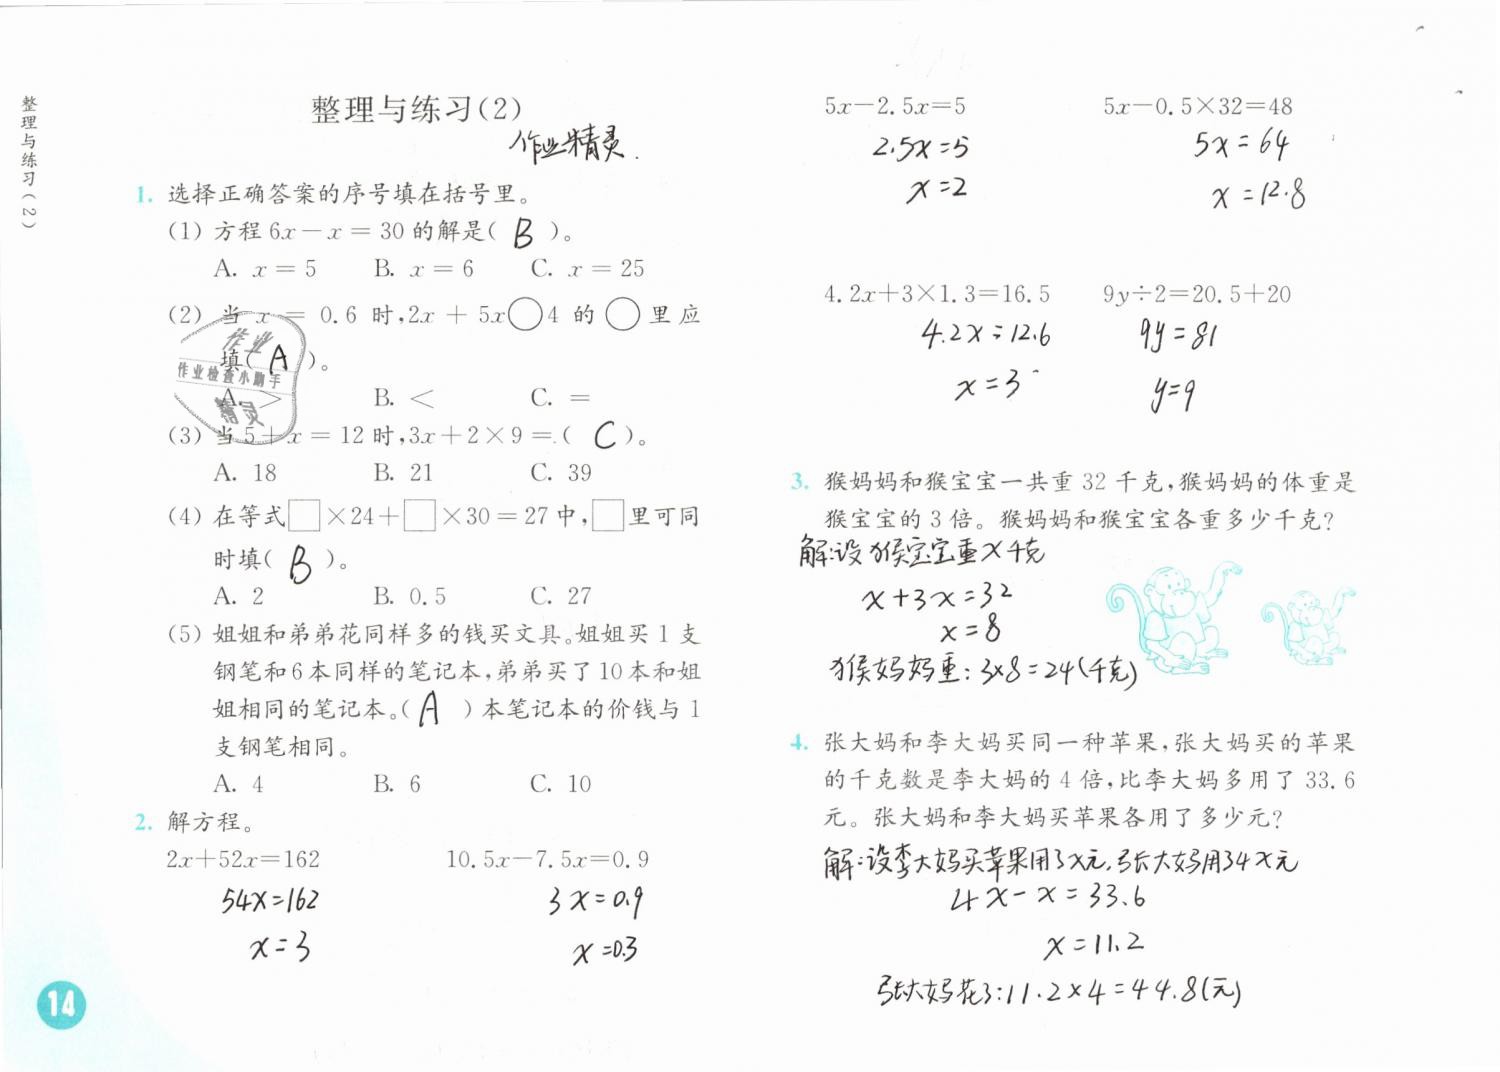 整理与练习(2)
整理与练习(2)
作业精灵.
1. 选择正确答案的序号填在括号里。
(1) 方程6x－x＝30的解是( B )。
A. x＝5 B. x＝6 C. x＝25
(2) 当x＝0.6时,2x＋5x○4的○里应
填( A )。
A. ＞ B. ＜ C. ＝
作业
作业检查小助手
精灵
(3) 当5＋x＝12时,3x＋2×9＝( C )。
A. 18 B. 21 C. 39
(4) 在等式□×24＋□×30＝27中,□里可同
时填( B )。
A. 2 B. 0.5 C. 27
(5) 姐姐和弟弟花同样多的钱买文具。姐姐买1支
钢笔和6本同样的笔记本,弟弟买了10本和姐
姐相同的笔记本。( A )本笔记本的价钱与1
支钢笔相同。
A. 4 B. 6 C. 10
2. 解方程。
2x＋52x＝162 10.5x－7.5x＝0.9
54x=162 3x=0.9
x=3 x=0.3
14
5x－2.5x＝5 5x－0.5×32＝48
2.5x=5 5x=64
x=2 x=12.8
4.2x＋3×1.3＝16.5 9y÷2＝20.5＋20
4.2x=12.6 9y=81
x=3 y=9
3. 猴妈妈和猴宝宝一共重32千克,猴妈妈的体重是
猴宝宝的3倍。猴妈妈和猴宝宝各重多少千克?
解:设猴宝宝重x千克
x+3x=32
x=8
猴妈妈重:3×8=24(千克)
4. 张大妈和李大妈买同一种苹果,张大妈买的苹果
的千克数是李大妈的4倍,比李大妈多用了33.6
元。张大妈和李大妈买苹果各用了多少元?
解:设李大妈买苹果用了x元,张大妈用了4x元
4x-x=33.6
x=11.2
张大妈花了:11.2×4=44.8(元)